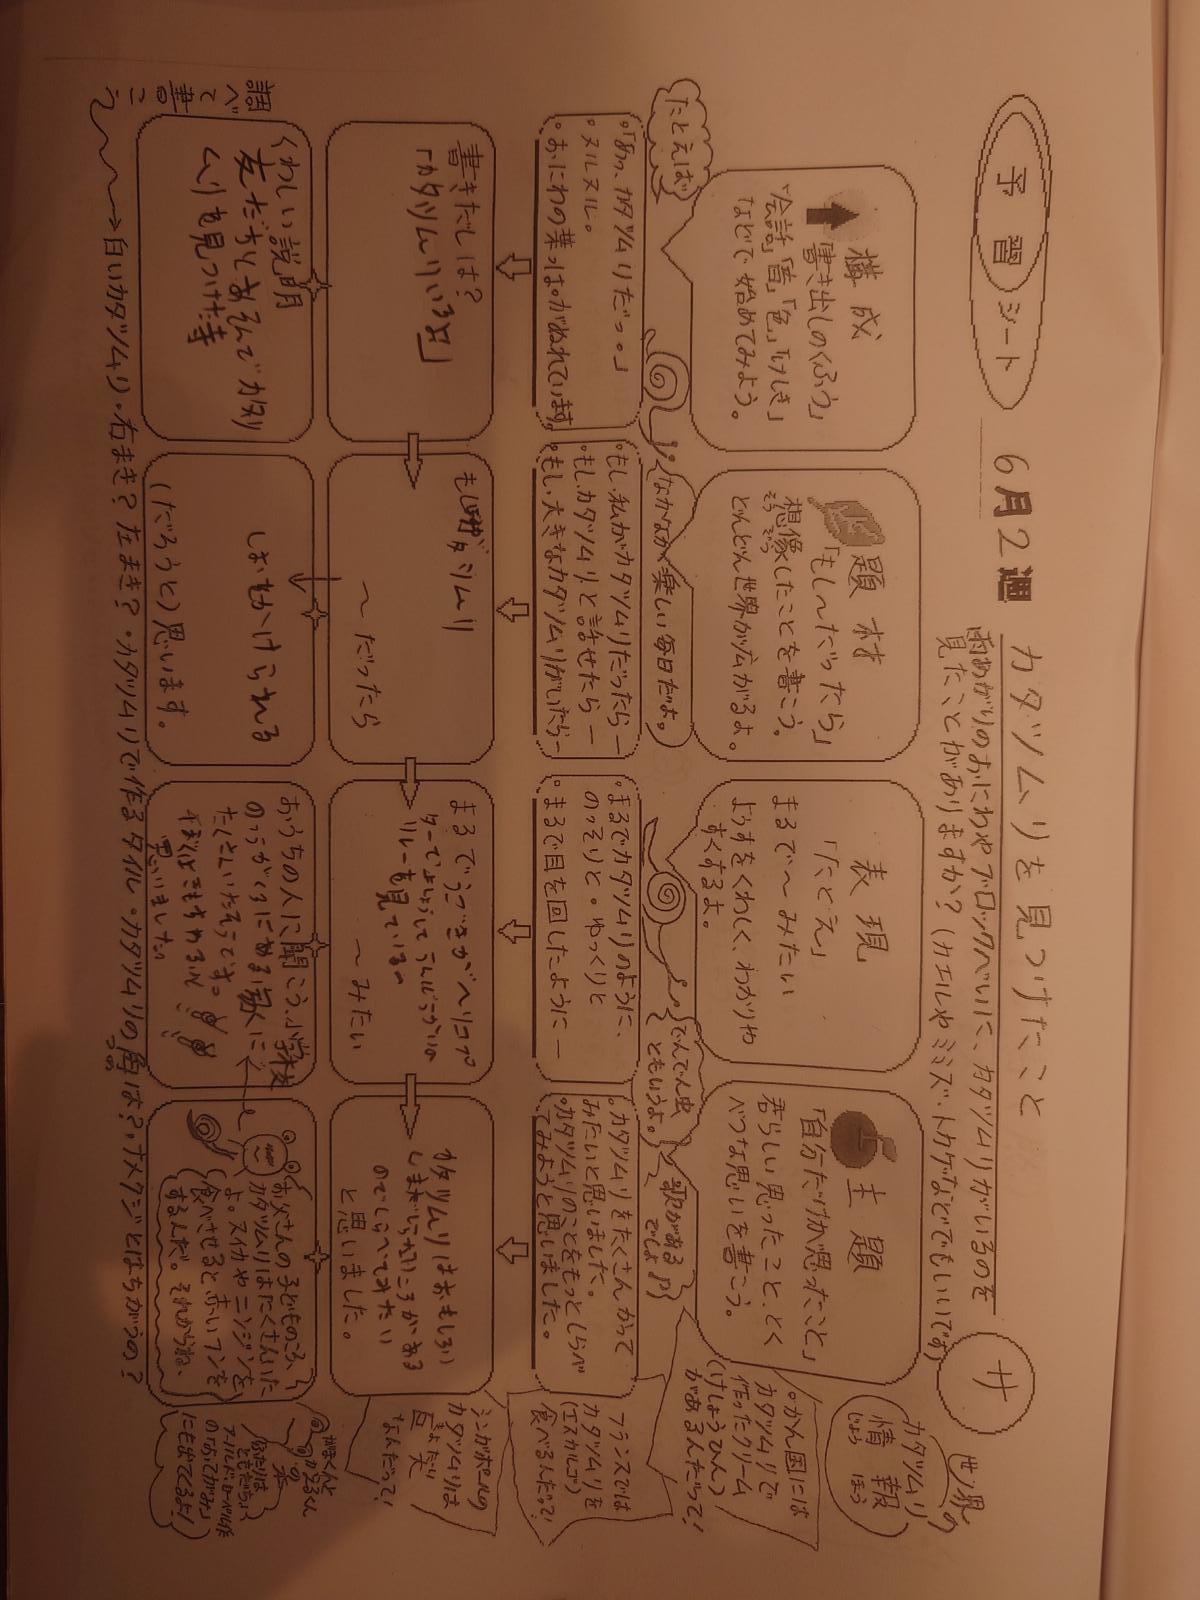 予習シート
6月2週
カタツムリを見つけたこと
雨あがりのおにわやブロックべいに、カタツムリがいるのを
見たことがありますか?(カエルやミミズ・トカゲなどでもいいです)
サ
世界の
カタツムリ
情報
じょうほう
構成
書き出しのくふう
「会話」「音」「色」「けしき」
などで始めてみよう。
題材
「もし〜だったら」
想像したことを書こう。
そうぞう
どんどん世界が広がるよ。
表現
「たとえ」
まるで〜みたい
ようすをくわしく、わかりや
すくするよ。
主題
「自分だけが思ったこと」
君らしい思ったこと、とく
べつな思いを書こう。
たとえば
なかなか楽しい毎日だよ。
でんでん虫
ともいうよ。
歌がある
でしょ
。「あっ、カタツムリだっ。」
。ヌルヌル。
。おにわの葉っぱがぬれています。
。もし、私がカタツムリだったら―
。もし、カタツムリと話せたら―
。もし、大きなカタツムリがいたら―
。まるでカタツムリのように、
のっそりと。ゆっくりと
。まるで目を回したように―
。カタツムリをたくさんかって
みたいと思いました。
。カタツムリのことをもっとしらべ
てみようと思いました。
書きだしは?
「カタツムリいるよ」
もし
〜だったら
まるでうごきがヘリコプ
ターで
リレーを見ている。
〜みたい
カタツムリはおもしろい
のでしらべてみたい
と思いました。
くわしい説明
友だちとあそんでカタツ
ムリを見つけた時
しおをかけられる
(だろうと)思います。
おうちの人に聞こう。
たくさんいたそうです。
思いました
お父さんの子どものころ、
カタツムリはたくさんいた
よ。スイカやニンジンを
食べさせると赤いフンを
するんだ。それからね、
。かん国には
カタツムリで
作ったクリーム
(けしょうひん)
があるんだって!
フランスでは
カタツムリを
(エスカルゴ)
食べるんだって!
シンガポールの
カタツムリは
巨大
きょだい
なんだって!
がまくんと
かえるくん
の本
「ふたりは
ともだち」
アーノルド・ローベル作
の「おてがみ」
にも出てるよ!
調べて書こう
→白いカタツムリ・右まき?左まき?・カタツムリで作るタイル・カタツムリの角は?・ナメクジとはちがうの?
つの